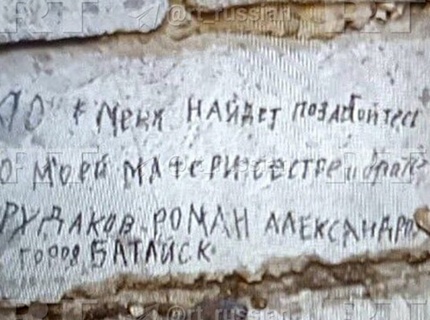 @rt_russian
Меня НАЙДЕТ ПОЗАБОЙТЕС
О МОЕЙ МАТЕРИ СЕСТРЕ и брате
РУДАКОВ РОМАН АЛЕКСАНДРО
ГОРОД БАТАЙСК
@rt_russian